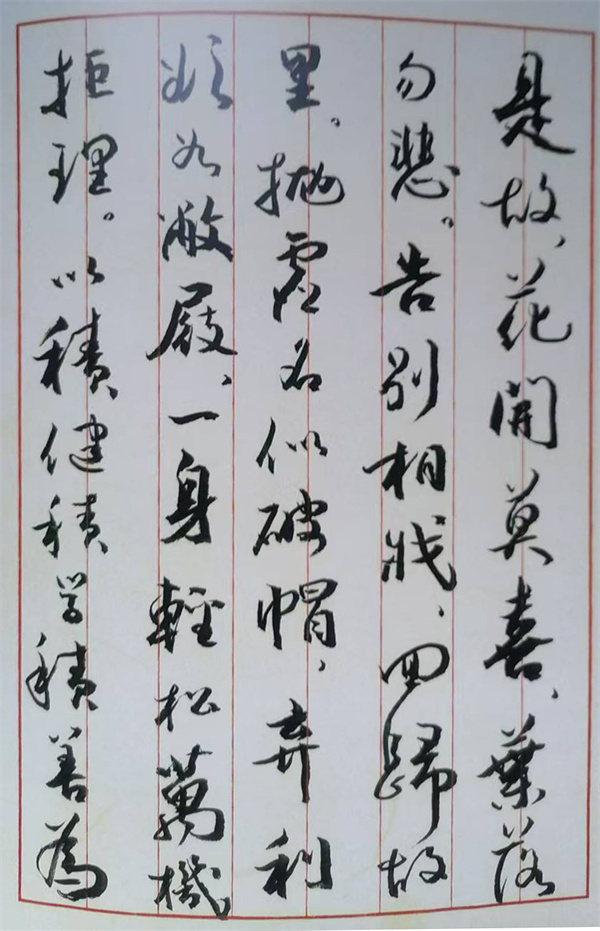 是故、花開莫喜、葉落
勿悲。告別相戕、回歸故
里。拋虛名似破帽、弃利
欲如敝屐、一身輕松萬機
拒理。以積健積学積善為